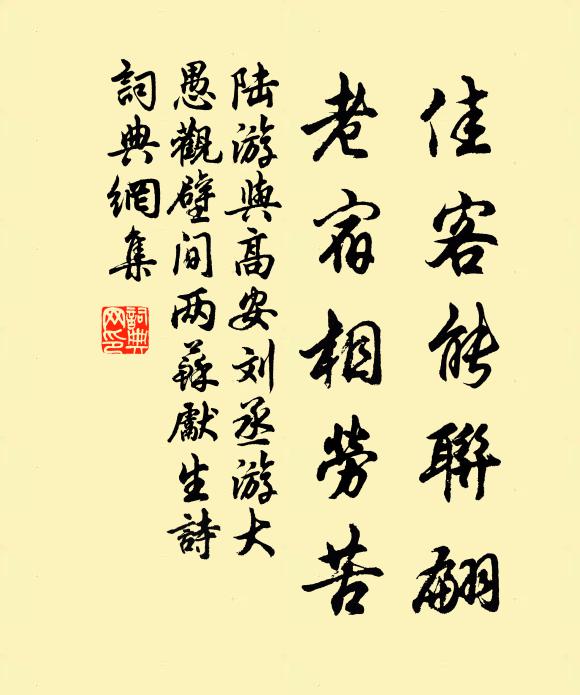 佳客能聯翩
老宿相勞苦
陆游與高安刘丞游大
愚觀壁间两蘇獻生詩
詞典網集
詞典网印